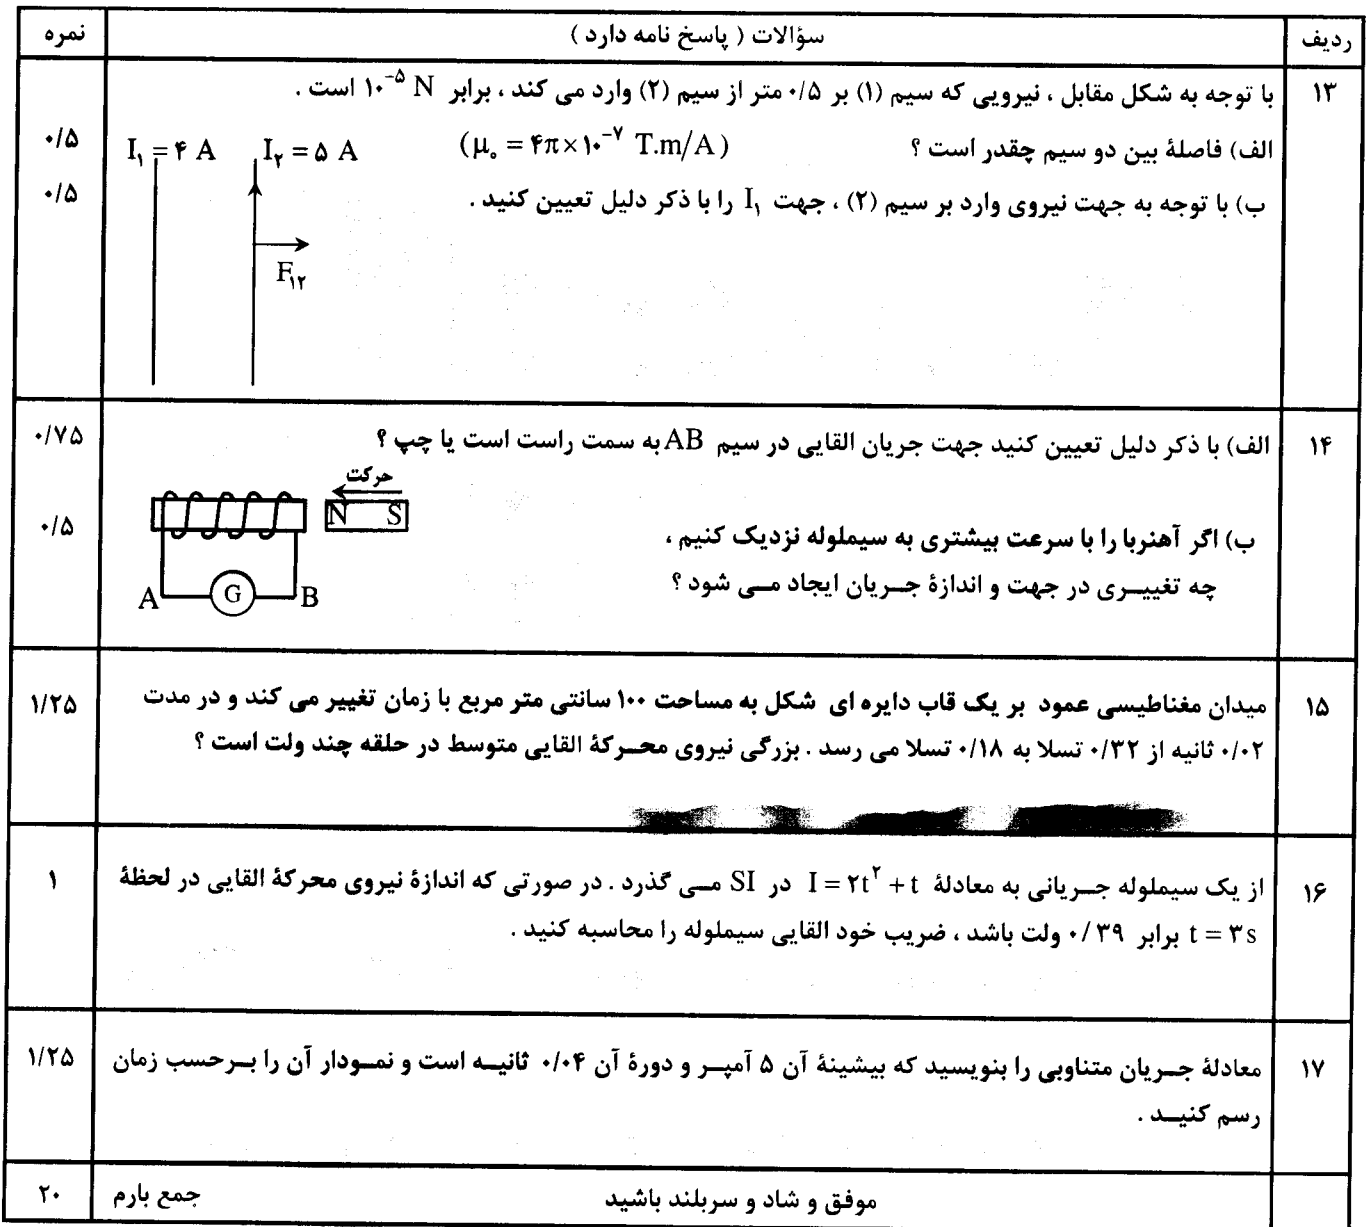 ردیف	سؤالات ( پاسخ نامه دارد )	نمره
۱۳	با توجه به شکل مقابل ، نیرویی که سیم (۱) بر ۰/۵ متر از سیم (۲) وارد می کند ، برابر ۱۰⁻⁵ N است .
الف) فاصلهٔ بین دو سیم چقدر است ؟ (μ₀ = ۴π×۱۰⁻⁷ T.m/A)	۰/۵
I₁ = ۴ A	I₂ = ۵ A
ب) با توجه به جهت نیروی وارد بر سیم (۲) ، جهت I₁ را با ذکر دلیل تعیین کنید .	۰/۵
F₁₂
۱۴	الف) با ذکر دلیل تعیین کنید جهت جریان القایی در سیم AB به سمت راست است یا چپ ؟	۰/۷۵
حرکت
N S
ب) اگر آهنربا را با سرعت بیشتری به سیملوله نزدیک کنیم ،	۰/۵
چه تغییـــری در جهت و اندازهٔ جـــریان ایجاد مـــی شود ؟
A G B
۱۵	میدان مغناطیسی عمود بر یک قاب دایره ای شکل به مساحت ۱۰۰ سانتی متر مربع با زمان تغییر می کند و در مدت	۱/۲۵
۰/۰۲ ثانیه از ۰/۳۲ تسلا به ۰/۱۸ تسلا می رسد . بزرگی نیروی محـــرکهٔ القایی متوسط در حلقه چند ولت است ؟
۱۶	از یک سیملوله جـــریانی به معادلهٔ I = ۲t² + t در SI مـــی گذرد . در صورتی که اندازهٔ نیروی محرکهٔ القایی در لحظهٔ	۱
t = ۳s برابر ۰/۳۹ ولت باشد ، ضریب خود القایی سیملوله را محاسبه کنید .
۱۷	معادلهٔ جـــریان متناوبی را بنویسید که بیشینهٔ آن ۵ آمپـــر و دورهٔ آن ۰/۰۴ ثانیـــه است و نمـــودار آن را بـــرحسب زمان	۱/۲۵
رسم کنیـــد .
موفق و شاد و سربلند باشید	جمع بارم	۲۰